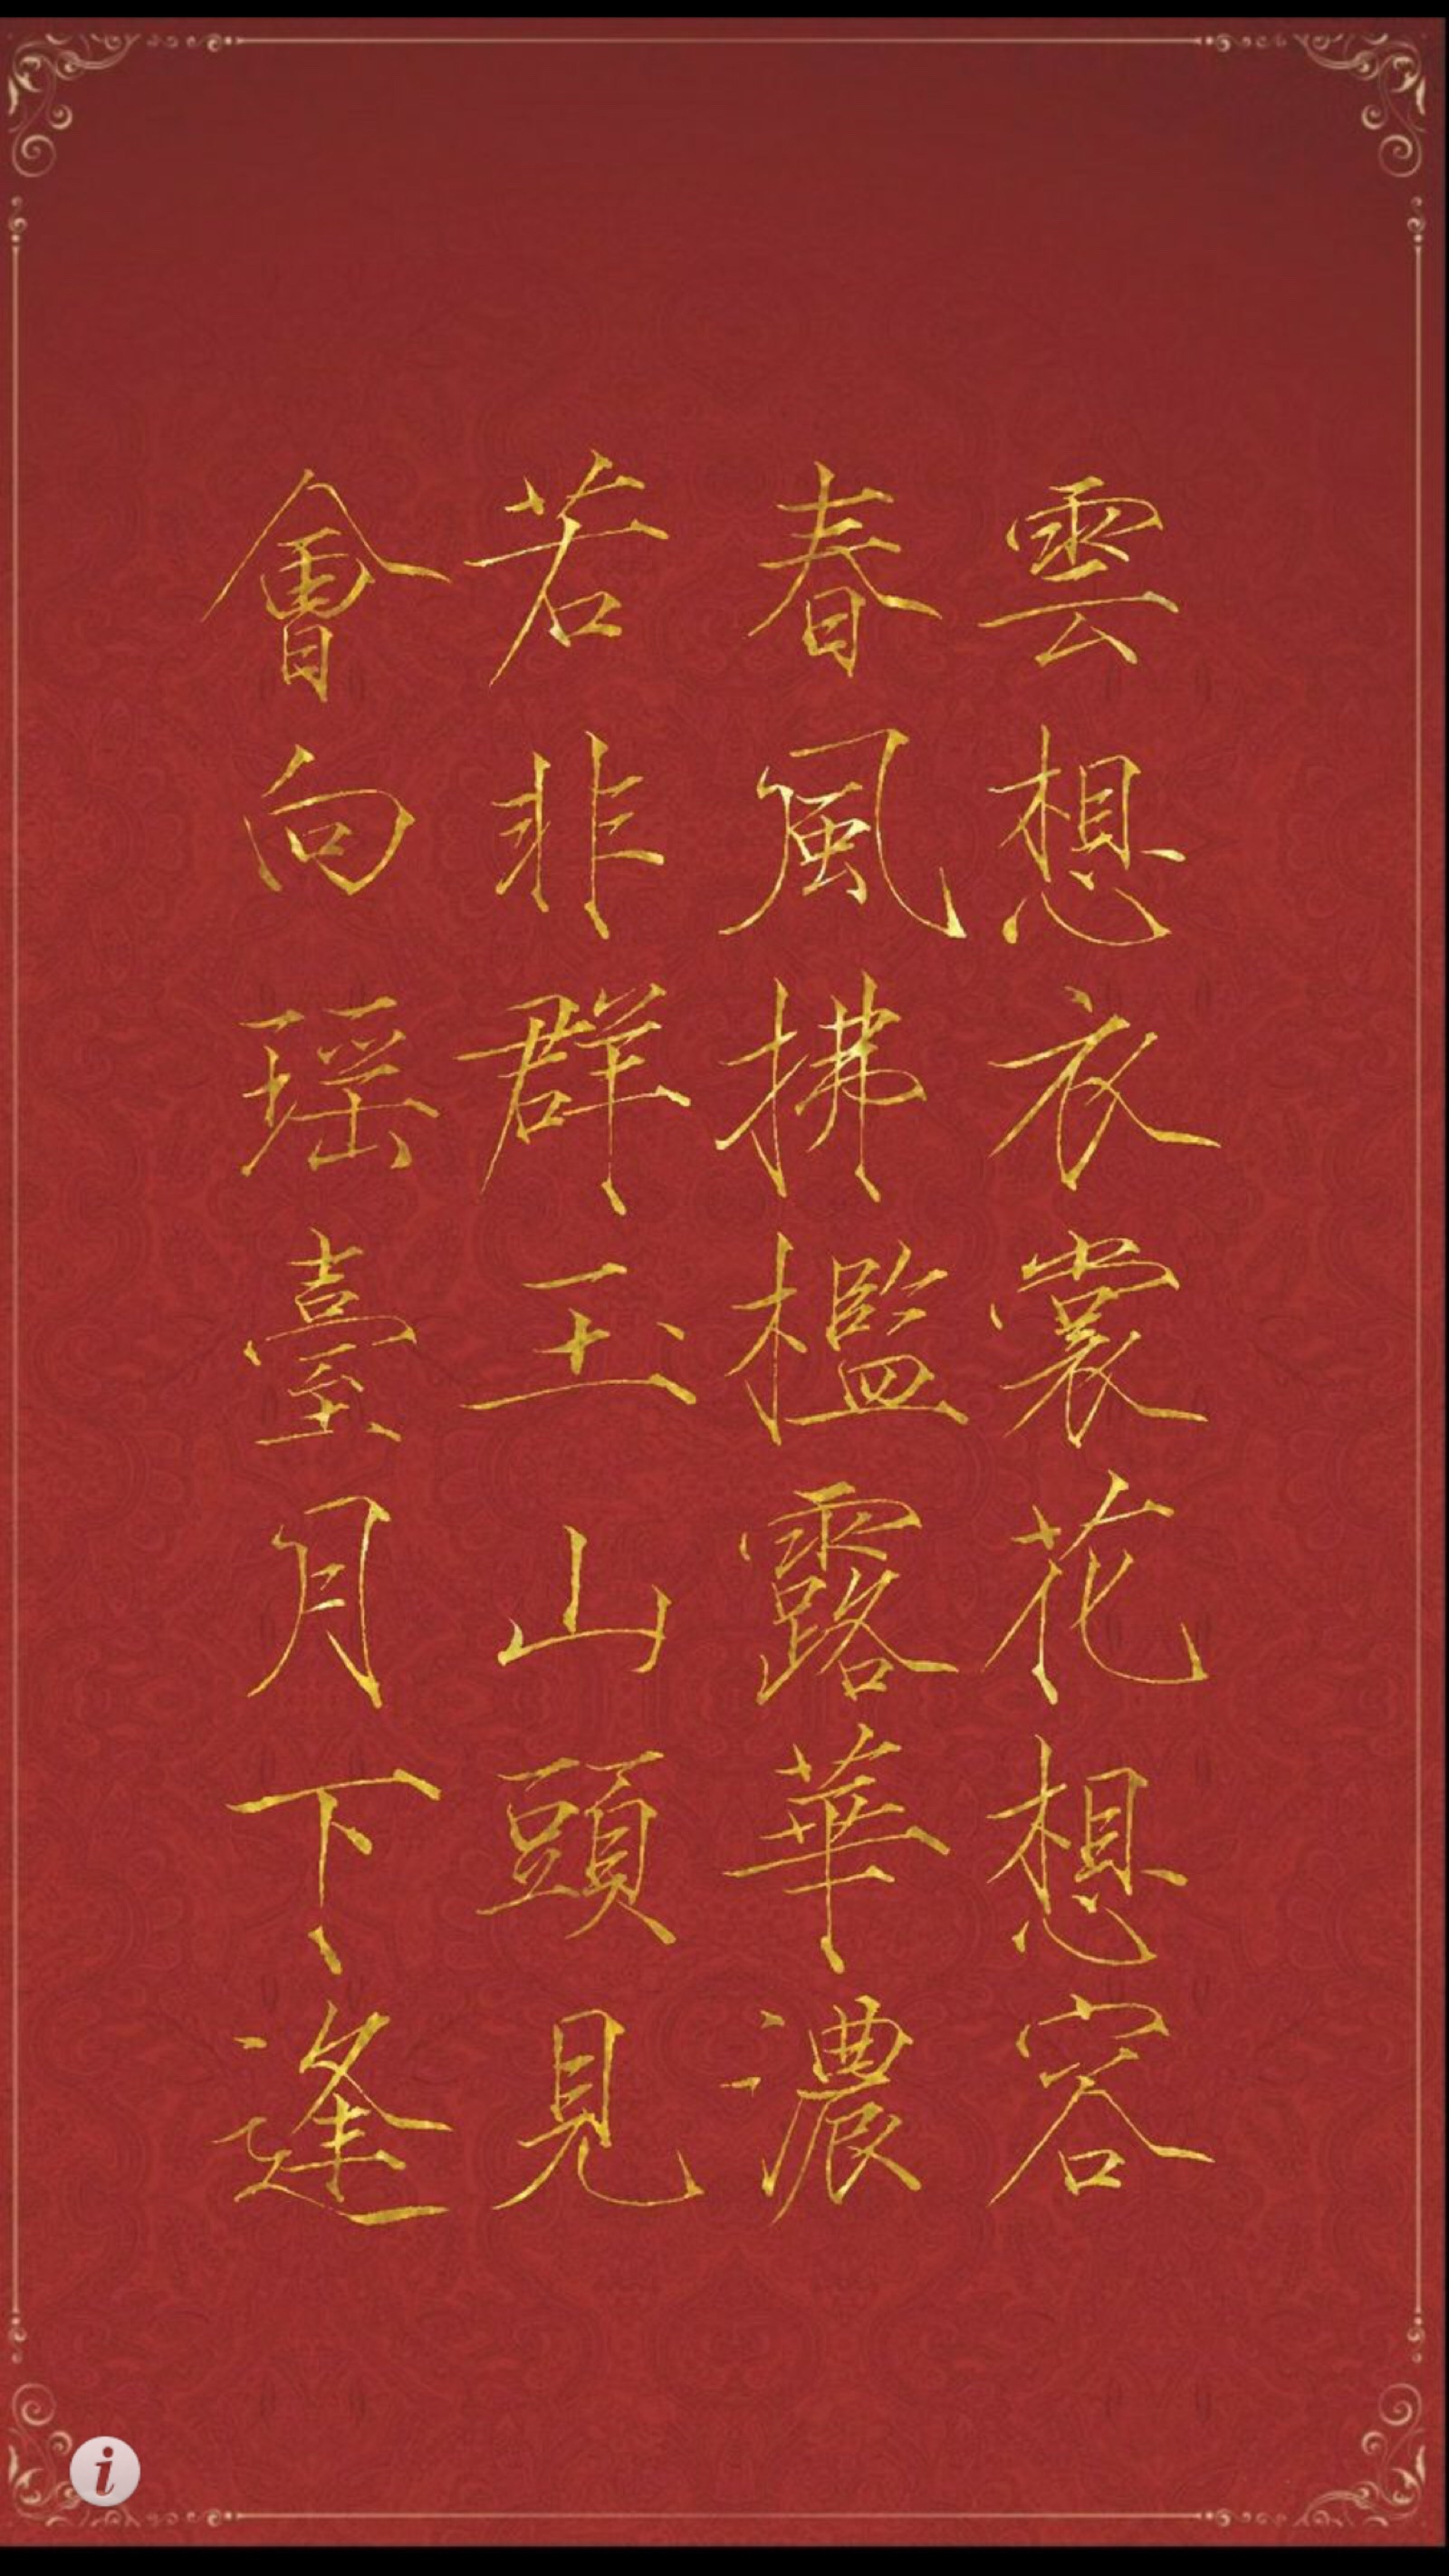 雲想衣裳花想容
春風拂檻露華濃
若非群玉山頭見
會向瑶臺月下逢
i